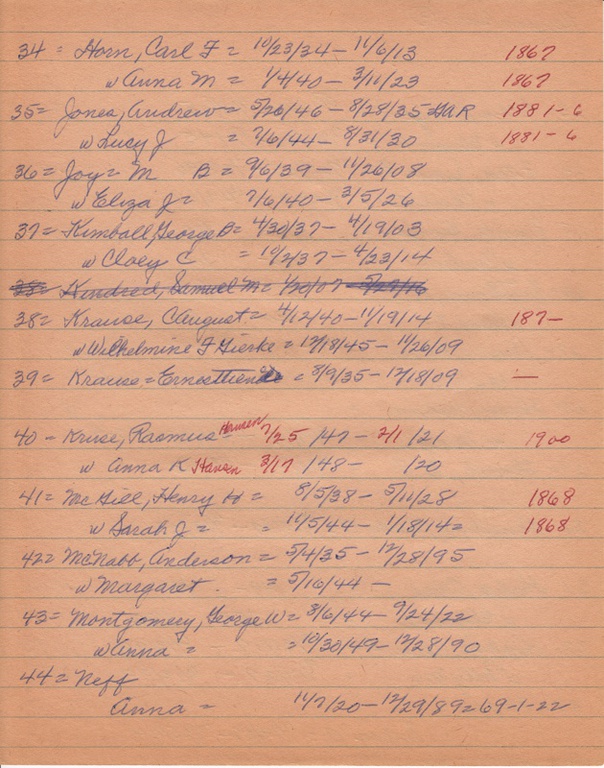 34 = Horn, Carl F = 10/23/34 - 11/6/13 1867
w Anna M = 1/4/40 - 3/11/23 1867
35 = Jones, Andrew = 5/26/46 - 8/28/35 GAR 1881-6
w Lucy J = 7/6/44 - 8/31/30 1881-6
36 = Joy = M B = 9/6/39 - 11/26/08
w Eliza J = 7/6/40 - 3/5/26
37 = Kimball, George B = 4/30/37 - 4/19/03
w Cloey C = 10/2/37 - 4/23/14
38 = Kindred, Samuel M = 1/20/07 - 5/29/16
38 = Krause, C August = 4/12/40 - 11/19/14 187-
w Wilhelmine F Gierke = 12/18/45 - 11/26/09
39 = Krause = Ernesttiende = 3/9/35 - 12/18/09 —
40 - Kruse, Rasmus Hansen 7/25/47 - 2/1/21 1900
w Anna K Hansen 3/17/48 - /20
41 = McGill, Henry H = 8/5/38 - 5/11/28 1868
w Sarah J = = 11/5/44 - 1/18/14 = 1868
42 = McNabb, Anderson = 5/4/35 - 12/28/95
w Margaret. = 5/16/44 -
43 = Montgomery, George W = 3/6/44 - 9/24/22
w Anna = = 10/30/49 - 12/28/90
44 = Neff
Anna = 11/7/20 - 12/29/89 = 69-1-22